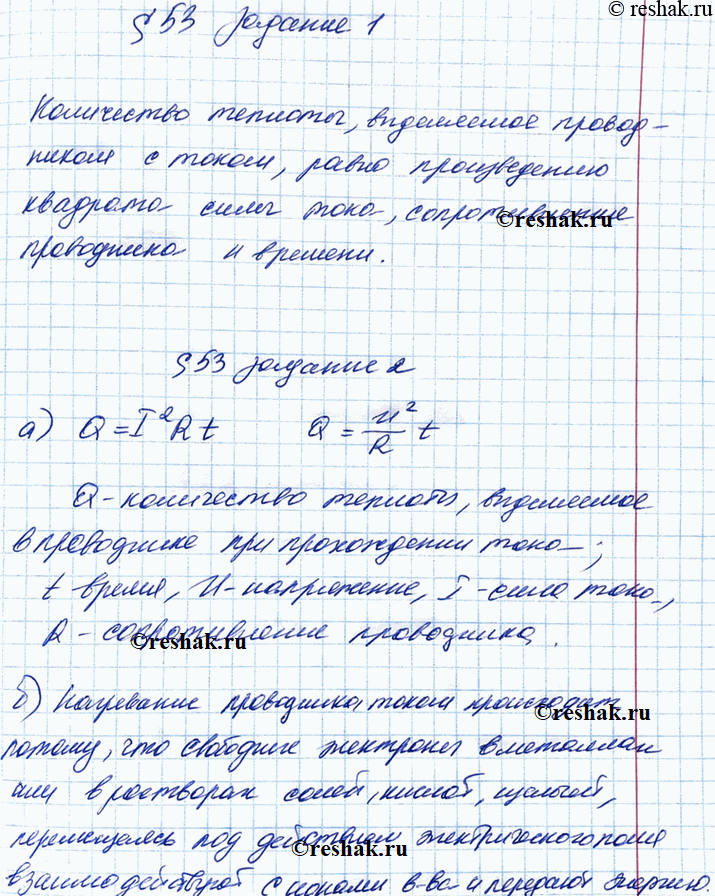 © reshak.ru
§ 53 задание 1
Количество теплоты, выделяемое провод-
ником с током, равно произведению
квадрата силы тока, сопротивление
© reshak.ru
проводника и времени.
§ 53 задание 2
а) Q = I²Rt Q = U²/R t
Q - количество теплоты, выделяемое
в проводнике при прохождении тока;
t время, U - напряжение, I - сила тока,
R - сопротивление проводника.
© reshak.ru
б) Нагревание проводника током происходит
© reshak.ru
потому, что свободные электроны в металлах
или в растворах солей, кислот, щелочей,
перемещаясь под действием электрического поля
взаимодействуют с ионами в-ва и передают энергию